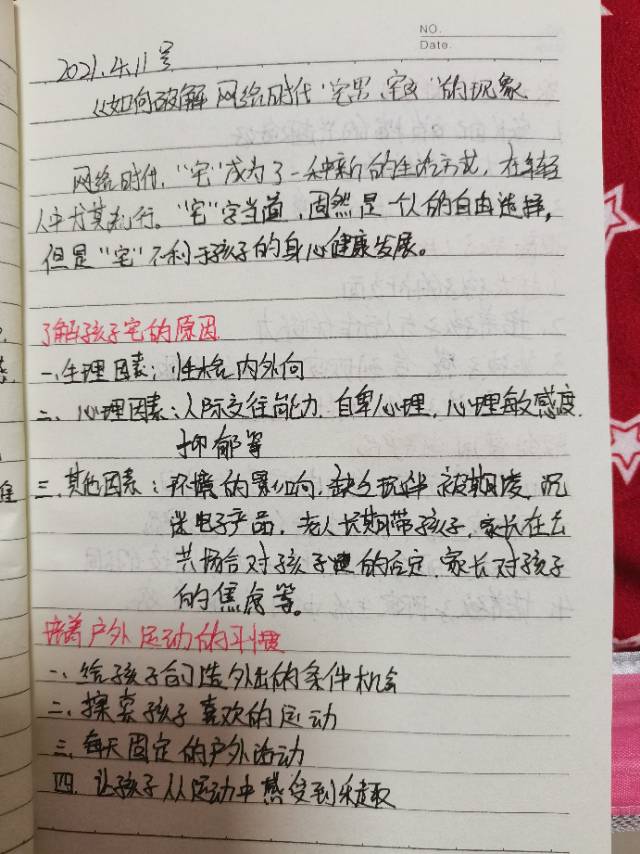 NO.
Date.
2021.4.11号
《如何破解网络时代"宅男、宅女"的现象
网络时代，"宅"成为了一种新的生活方式，在年轻
人中尤其执行。"宅"字当道，固然是个人的自由选择，
但是"宅"不利于孩子的身心健康发展。
了解孩子宅的原因
一、生理因素：性格内外向
二、心理因素：人际交往能力，自卑心理，心理敏感度
抑郁等
三、其他因素：环境的影响，缺乏玩伴 被欺凌 沉
迷电子产品，老人长期带孩子，家长在公
共场合对孩子的否定，家长对孩子
的焦虑等。
培养户外运动的习惯
一、给孩子创造外出的条件机会
二、探索孩子喜欢的运动
三、每天固定的户外活动
四、让孩子从运动中感受到乐趣